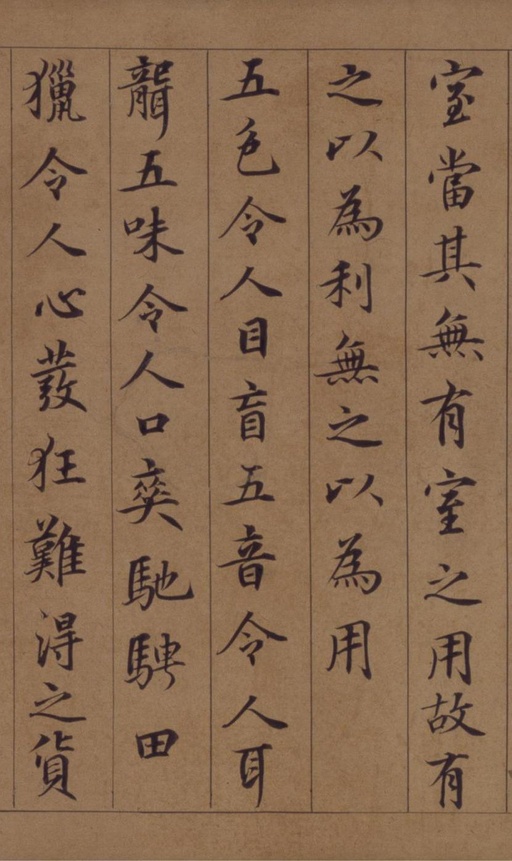 室當其無有室之用故有
之以為利無之以為用
五色令人目盲五音令人耳
聾五味令人口爽馳騁田
獵令人心發狂難得之貨